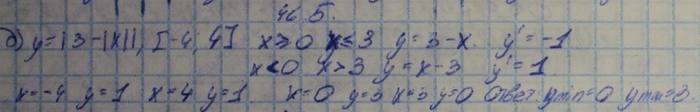 46 5.
б) y=|3-|x||, [-4; 4] x≥0 x≤3 y=3-x. y'=-1
x<0 x>3 y=x-3 y'=1
x=-4 y=1 x=4 y=1 x=0 y=3 x=3 y=0 Ответ: ymin=0 ymax=3.